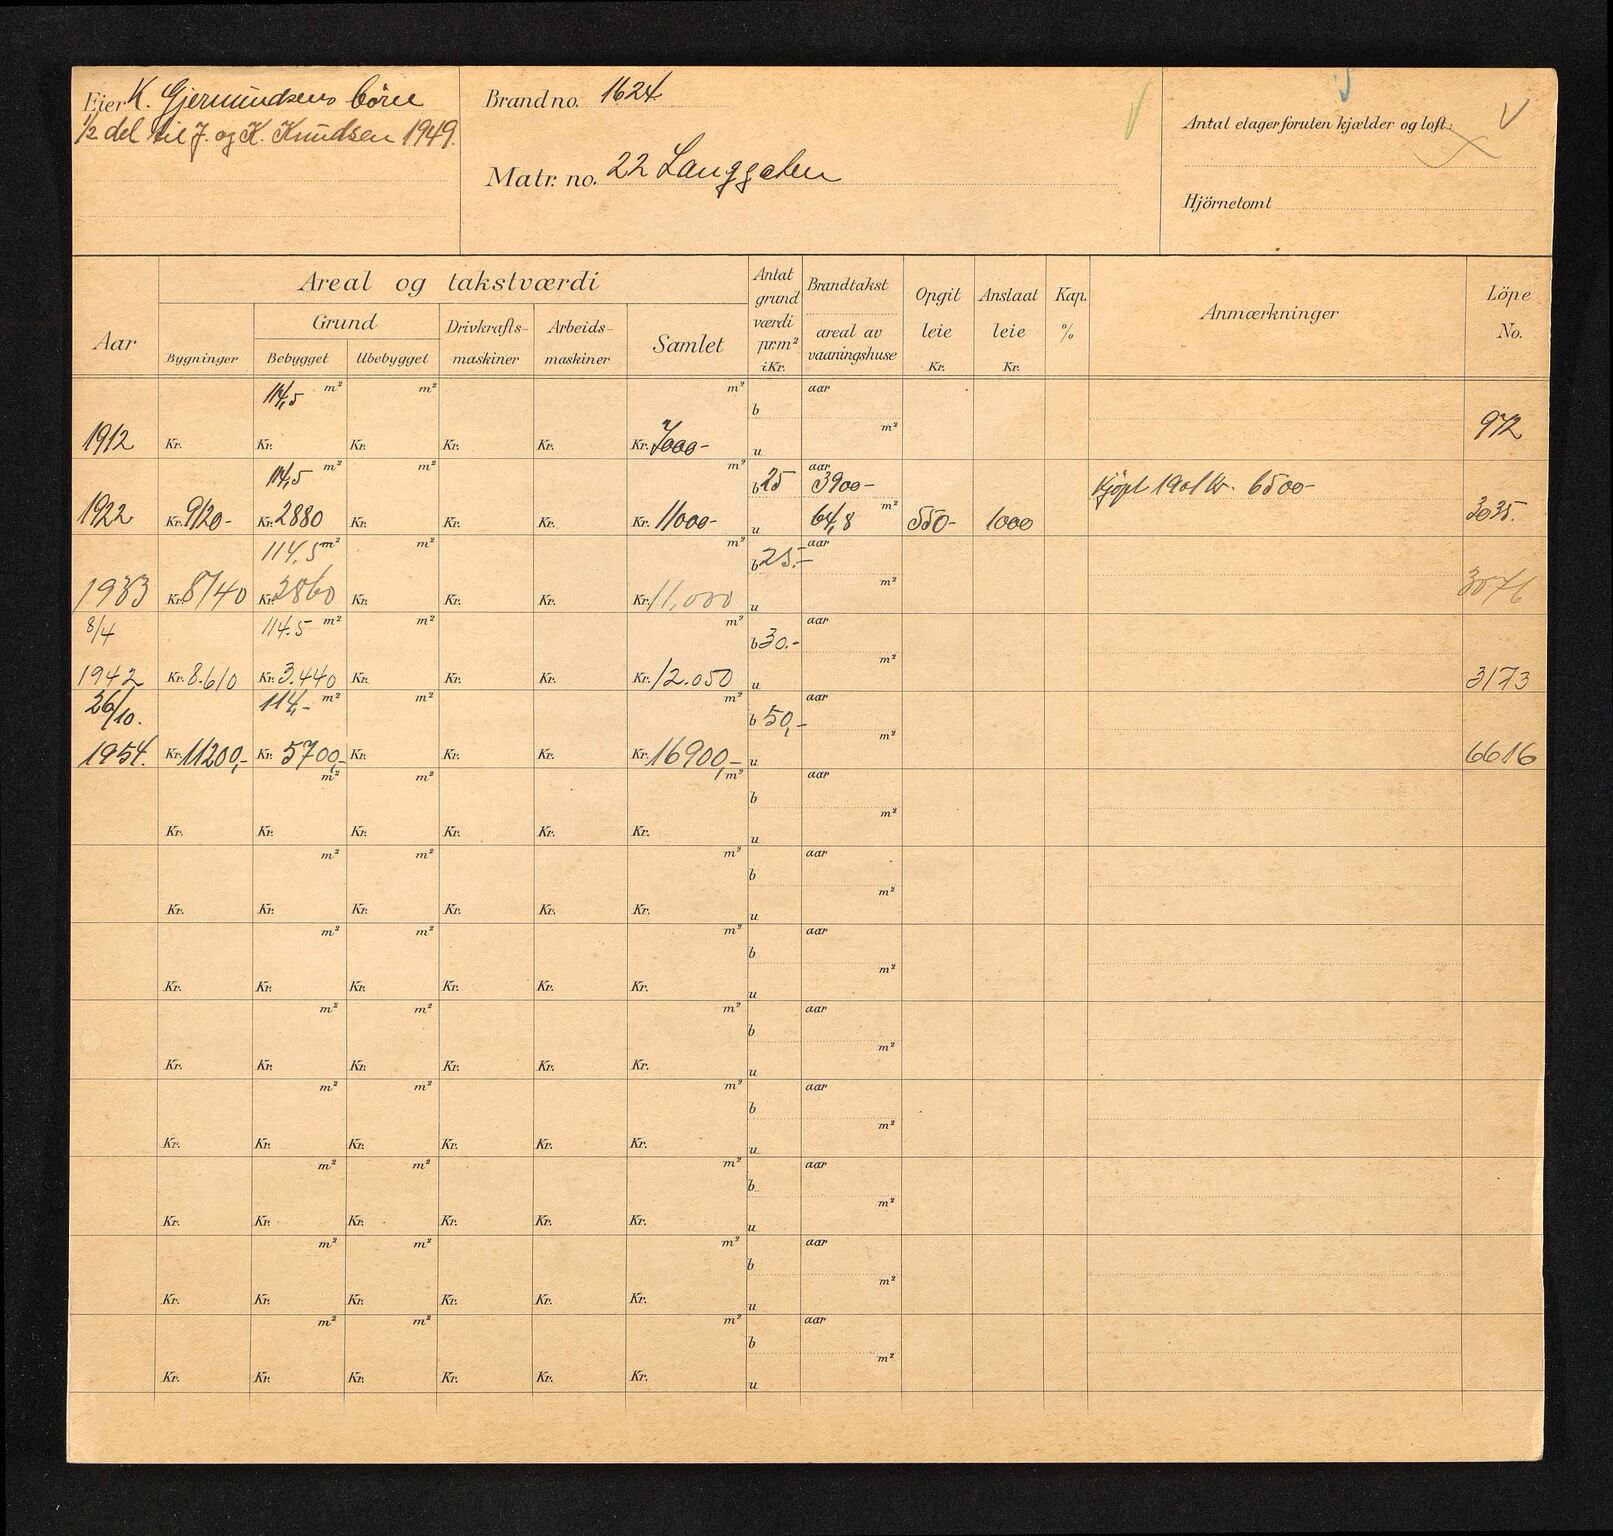 Eier K. Gjermundsens börn
1/2 del til J. og K. Knudsen 1949.
Brand no. 1624
Matr. no. 22 Langgaten
Antal etager foruten kjælder og loft:
Hjörnetomt
Aar
Areal og takstværdi
Grund
Bygninger
Bebygget
Ubebygget
Drivkrafts-
maskiner
Arbeids-
maskiner
Samlet
Antat
grund
værdi
pr. m²
i Kr.
Brandtakst
areal av
vaaningshuse
Opgit
leie
Kr.
Anslaat
leie
Kr.
Kap.
%
Anmærkninger
Löpe
No.
114,5 m² m² m² aar
b
m²
1912 Kr. Kr. Kr. Kr. Kr. Kr. 7000- u 972
114,5 m² m² m² b 25 aar 3900- kjöpt 1901 kr. 6500-
1922 Kr. 9120- Kr. 2880 Kr. Kr. Kr. Kr. 11000- u 64,8 m² 550- 1000 3035.
114,5 m² m² m² b 25.- aar
m²
1933 Kr. 8140 Kr. 2860 Kr. Kr. Kr. Kr. 11,000 u 3076
8/4 114.5 m² m² m² b 30.- aar
m²
1942 Kr. 8.610 Kr. 3.440 Kr. Kr. Kr. Kr. 12.050 u 3173
26/10. 114,- m² m² m² b 50,- aar
m²
1954. Kr. 11200,- Kr. 5700,- Kr. Kr. Kr. Kr. 16900,- u 6616
m² m² m² aar
b
m²
Kr. Kr. Kr. Kr. Kr. Kr. u
m² m² m² aar
b
m²
Kr. Kr. Kr. Kr. Kr. Kr. u
m² m² m² aar
b
m²
Kr. Kr. Kr. Kr. Kr. Kr. u
m² m² m² aar
b
m²
Kr. Kr. Kr. Kr. Kr. Kr. u
m² m² m² aar
b
m²
Kr. Kr. Kr. Kr. Kr. Kr. u
m² m² m² aar
b
m²
Kr. Kr. Kr. Kr. Kr. Kr. u
m² m² m² aar
b
m²
Kr. Kr. Kr. Kr. Kr. Kr. u
m² m² m² aar
b
m²
Kr. Kr. Kr. Kr. Kr. Kr. u